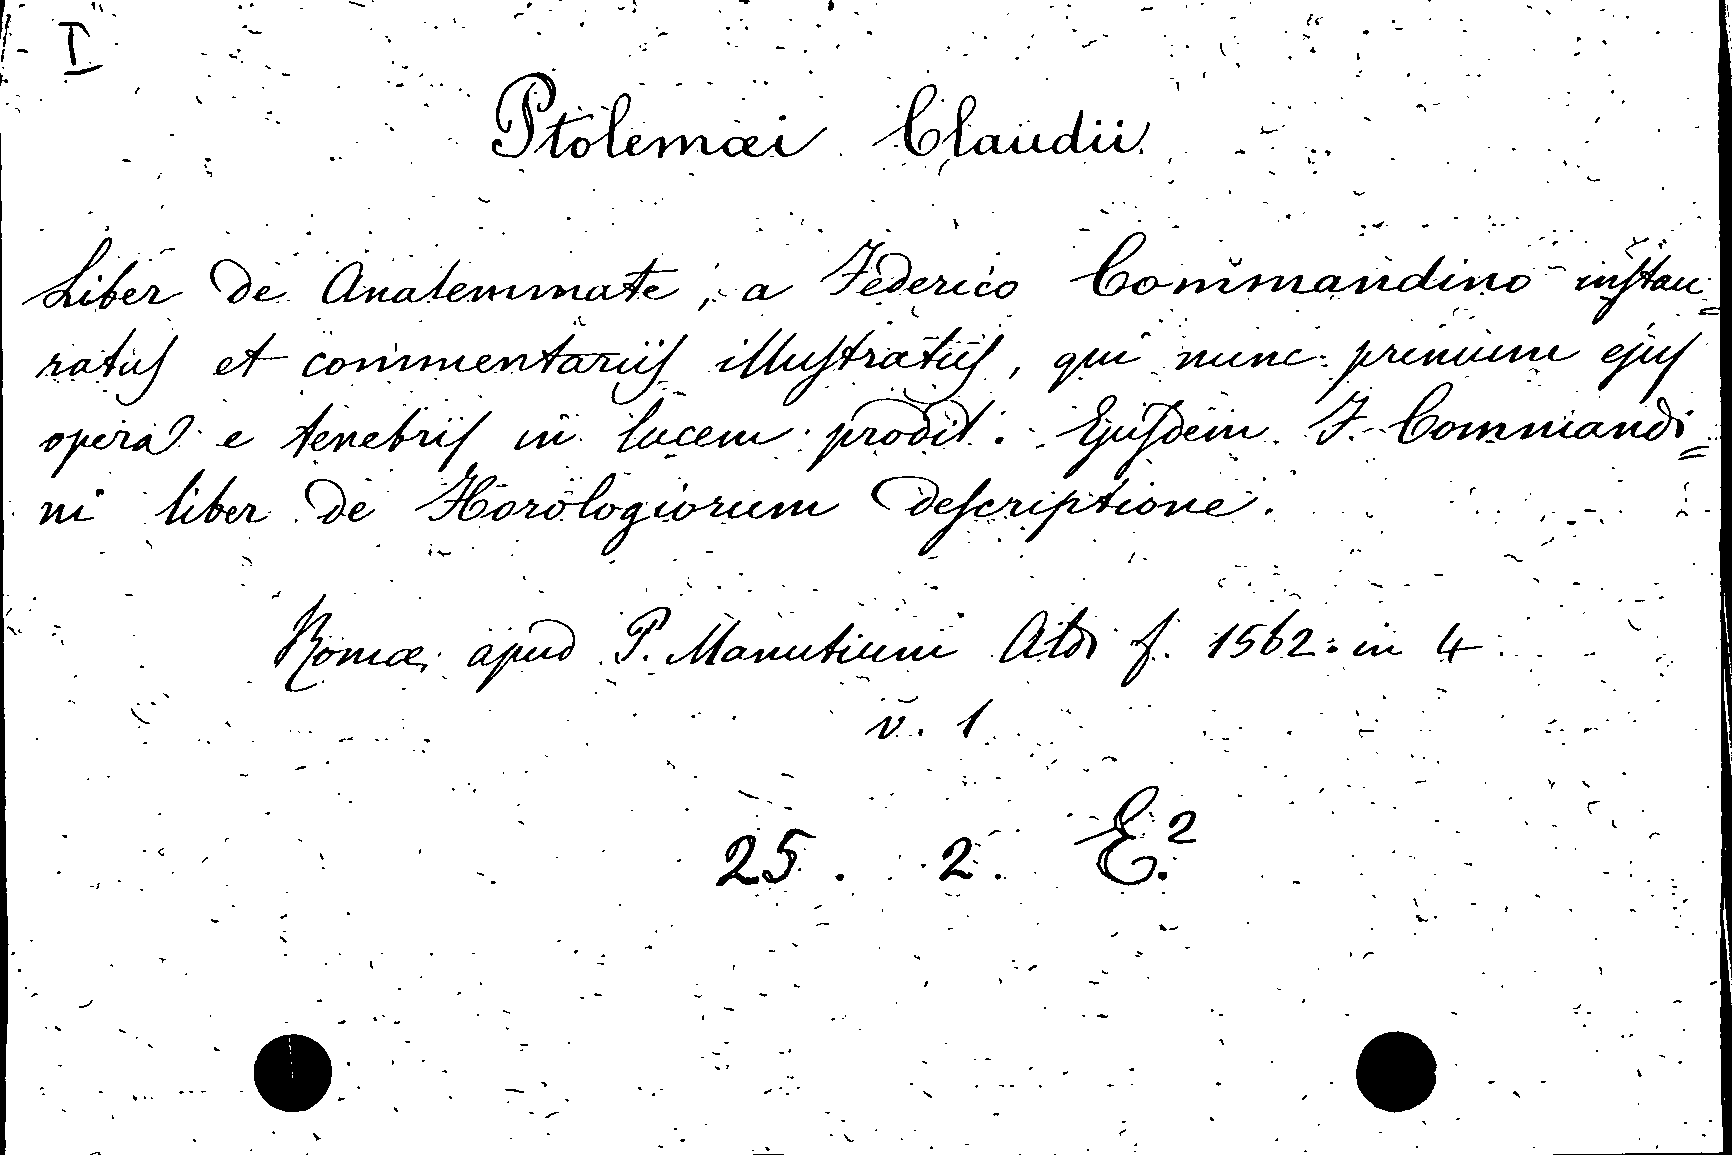 I
Ptolemæi Claudii
Liber de Analemmate, a Federico Commandino instau=
ratus et commentariis illustratus, qui nunc primum ejus
opera e tenebris in lucem prodit. Ejusdem F. Commandi=
ni liber de Horologiorum descriptione.
Romæ apud P. Manutium Aldi f. 1562. in 4
v. 1
25. 2. E.²